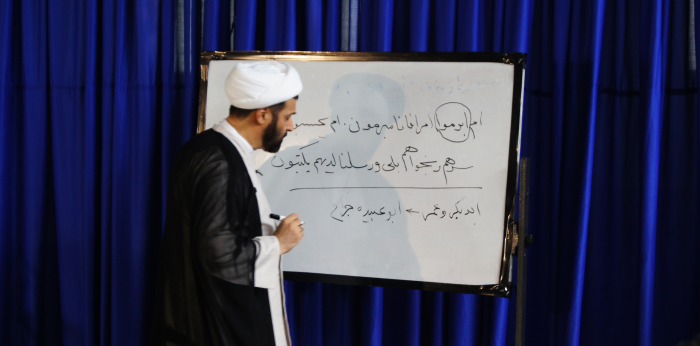 ام ابرموا امرا فانا مبرمون . ام
سرهم و نجواهم بلی و رسلنا لدیهم یکتبون
ابوبکر و عمر ← ابو عبیده جراح